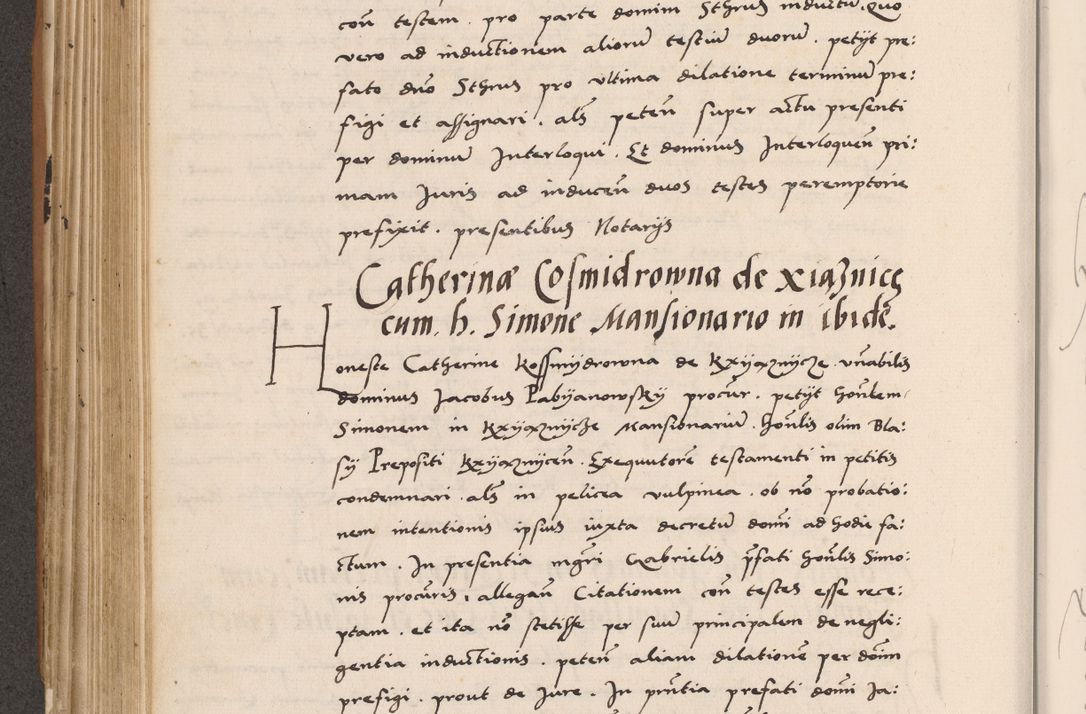 con̄ testem . pro parte domini Sthrus inductū. Quo
vero ad inductionem aliorū testiū duorū . petijt pre:
fato dn̄o Sthrus pro ultima dilatione terminū pre:
figi et assignari . als̄ peten̄ super actu presenti
per dominū Interloqui . Et dominus Interloquen̄ pri:
mam Juris ad inducen̄ duos testes peremptorie
prefixit . presentibus Notarijs
Catherinæ Cosmidrowna de Xiąznicz
cum h. Simone Mansionario in ibidē.
Honeste Catherine Kossmydrowna de Kxyąznycze . vn̄abilis
dominus Jacobus Pabyanowsky procur̄ . petijt hon̄lem
Simonem in Kxyąznycze Mansionariū . hon̄lis olim Bla:
sy Prepositi Kxyąznycen̄ . Exequutorē testamenti in petitis
condemnari . als̄ in pelicea vulpinea . ob nō probatio:
nem intentionis ipsius iuxta decretū domi ad hodie fa:
ctum . In presentia mgr̄i Gabrielis p̄fati hon̄lis Simo:
nis procūris, allegan̄ Citationem con̄ testes esse rece:
ptam . et ita nō stetisse per suū principalem de negli:
gentia inductionis . peten̄ aliam dilationē per dōim
prefigi . prout de Jure . In prn̄tia prefati domi Ja: